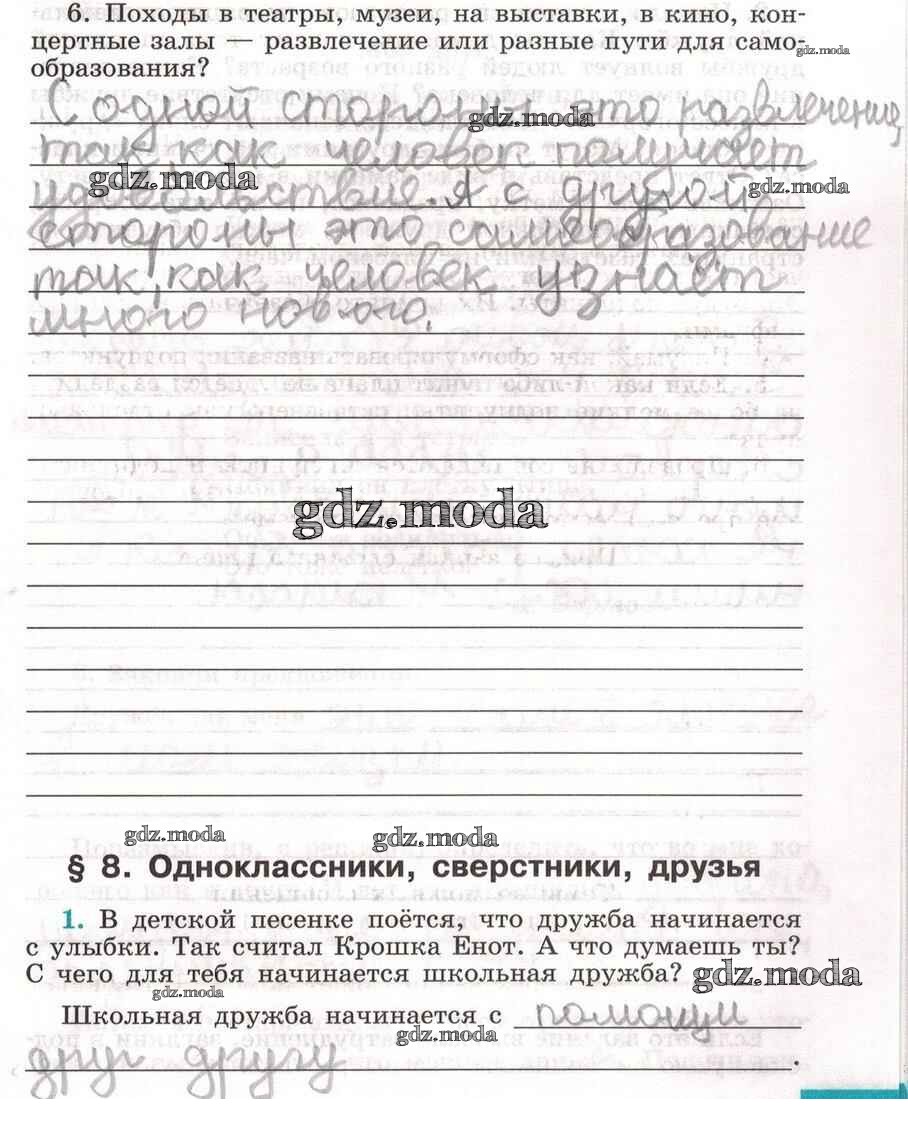 6. Походы в театры, музеи, на выставки, в кино, кон-
цертные залы — развлечение или разные пути для само-
gdz.moda
образования?
С одной стороны это развлечение,
gdz.moda
так как человек получает
gdz.moda
gdz.moda
удовольствие. А с другой
стороны это самообразование
так, как человек узнаёт
много нового.
gdz.moda
gdz.moda
gdz.moda
§ 8. Одноклассники, сверстники, друзья
1. В детской песенке поётся, что дружба начинается
с улыбки. Так считал Крошка Енот. А что думаешь ты?
С чего для тебя начинается школьная дружба?
gdz.moda
gdz.moda
Школьная дружба начинается с помощи
gdz.moda
друг другу.